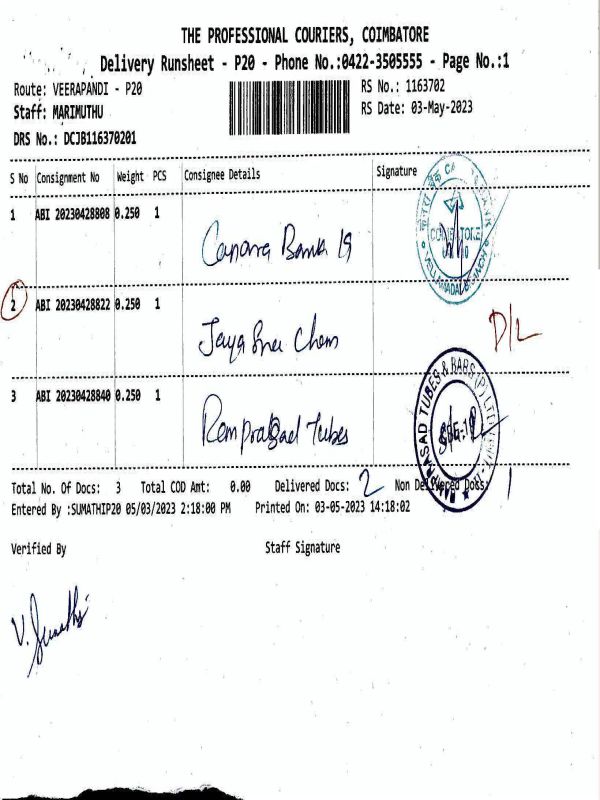 THE PROFESSIONAL COURIERS, COIMBATORE
Delivery Runsheet - P20 - Phone No.:0422-3505555 - Page No.:1
Route: VEERAPANDI - P20
RS No.: 1163702
Staff: MARIMUTHU
RS Date: 03-May-2023
DRS No.: DCJB116370201
S No Consignment No Weight PCS Consignee Details Signature
1 ABI 20230428808 0.250 1
Canara Bank 19
COIMBATORE
2 ABI 20230428822 0.250 1
Jaya Sree Chem
D/L
3 ABI 20230428840 0.250 1
Ramprasad Tubes
RAMPRASAD TUBES & BABS (P) LTD
Total No. Of Docs: 3 Total COD Amt: 0.00 Delivered Docs: 2 Non Delivered Docs: 1
Entered By :SUMATHIP20 05/03/2023 2:18:00 PM Printed On: 03-05-2023 14:18:02
Verified By Staff Signature
V. Sumathi